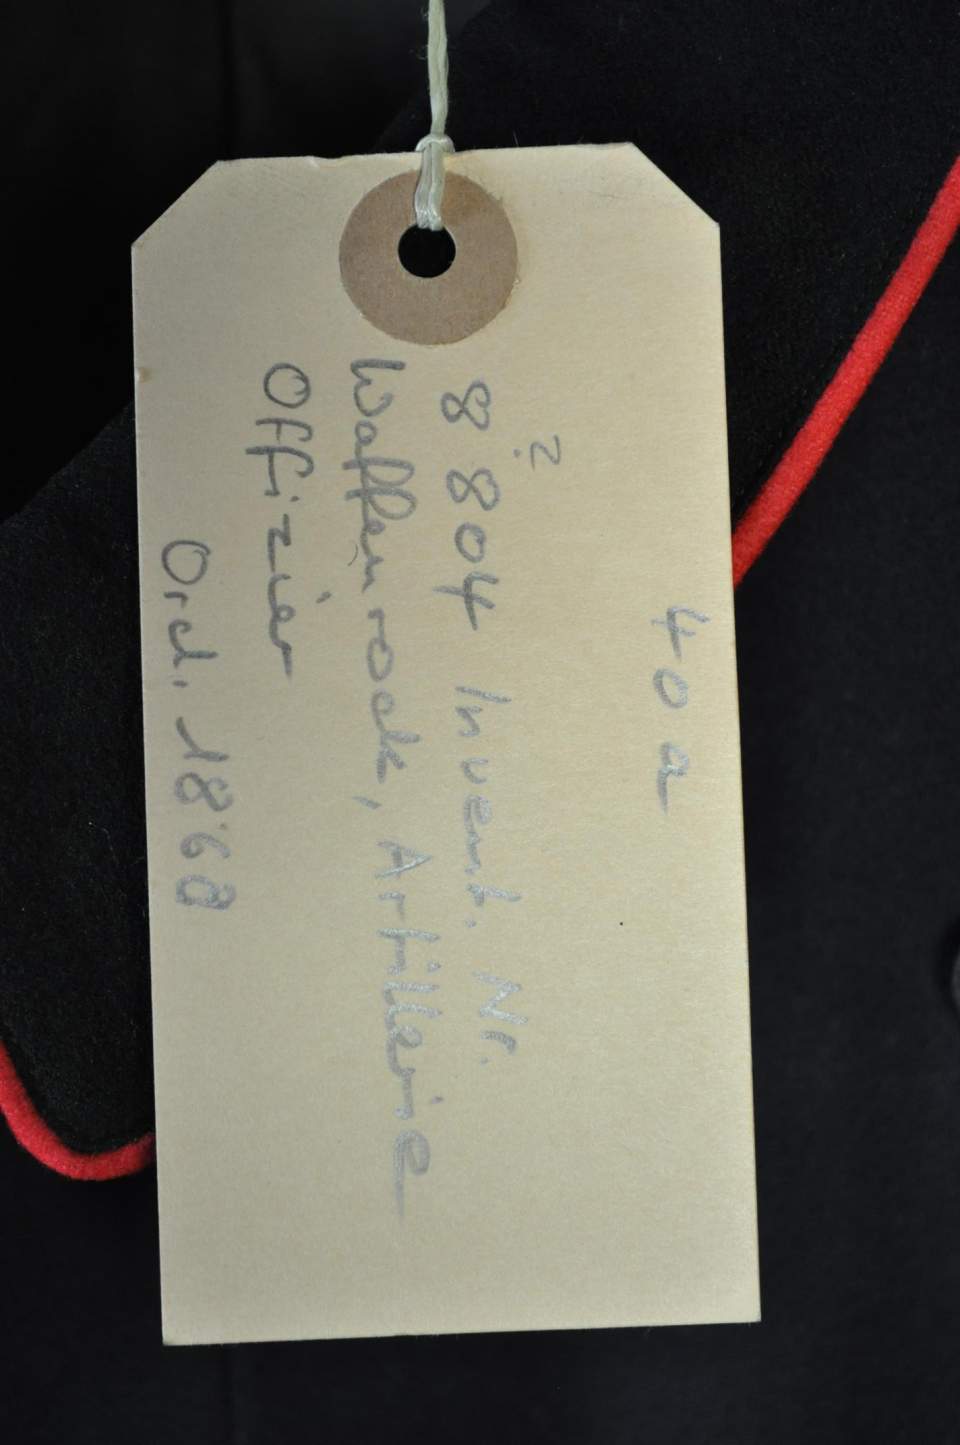 40 a
?
8804 Invent. Nr.
Waffenrock, Artillerie
Offizier
Ord. 1868